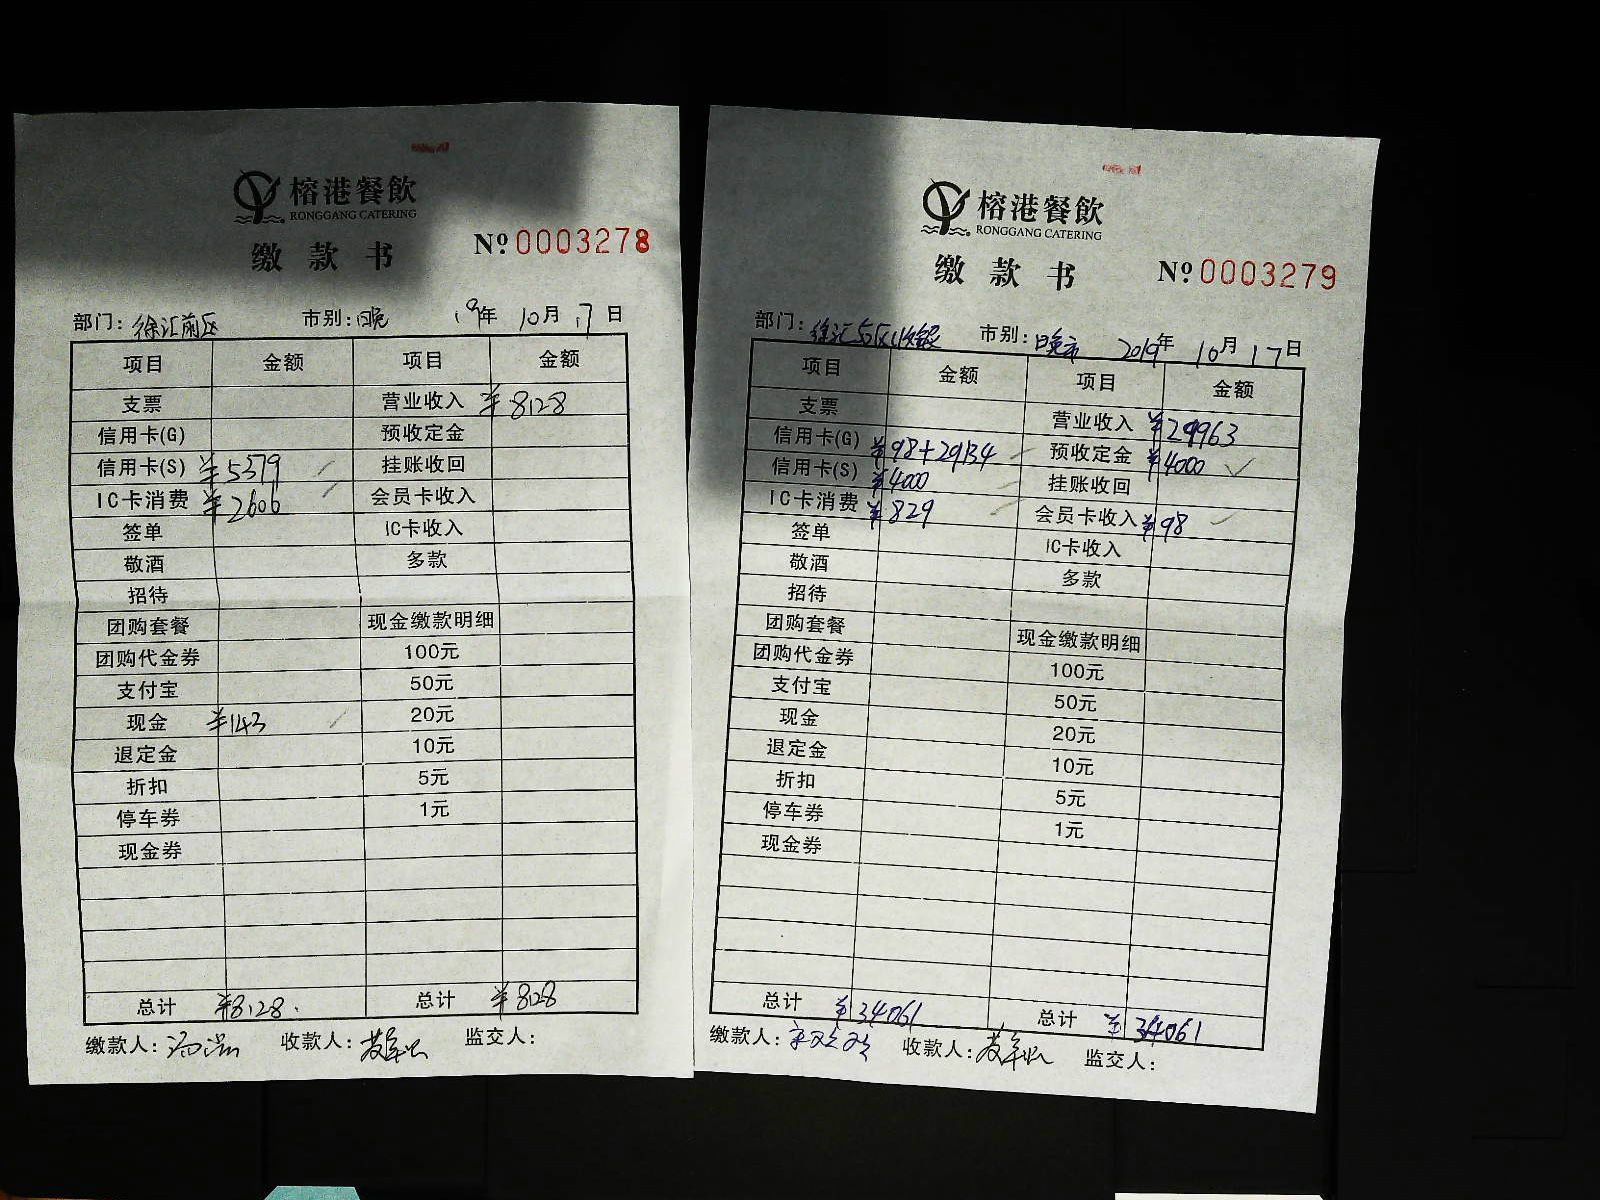 榕港餐飲
RONGGANG CATERING
缴款书
№0003278
部门：徐汇前区 市别：晚 19年10月17日
项目 金额 项目 金额
支票 营业收入 ¥8128
信用卡(G) 预收定金
信用卡(S) ¥5379 挂账收回
IC卡消费 ¥2606 会员卡收入
签单 IC卡收入
敬酒 多款
招待
团购套餐 现金缴款明细
团购代金券 100元
支付宝 50元
现金 ¥143 20元
退定金 10元
折扣 5元
停车券 1元
现金券
总计 ¥8128. 总计 ¥8128
缴款人： 收款人： 监交人：
榕港餐飲
RONGGANG CATERING
缴款书
№0003279
部门：徐汇后区收银 市别：晚市 2019年10月17日
项目 金额 项目 金额
支票 营业收入 ¥29963
信用卡(G) ¥98+29134 预收定金 ¥4000
信用卡(S) ¥4000 挂账收回
IC卡消费 ¥829 会员卡收入 ¥98
签单 IC卡收入
敬酒 多款
招待
团购套餐 现金缴款明细
团购代金券 100元
支付宝 50元
现金 20元
退定金 10元
折扣 5元
停车券 1元
现金券
总计 ¥34061 总计 ¥34061
缴款人： 收款人： 监交人：